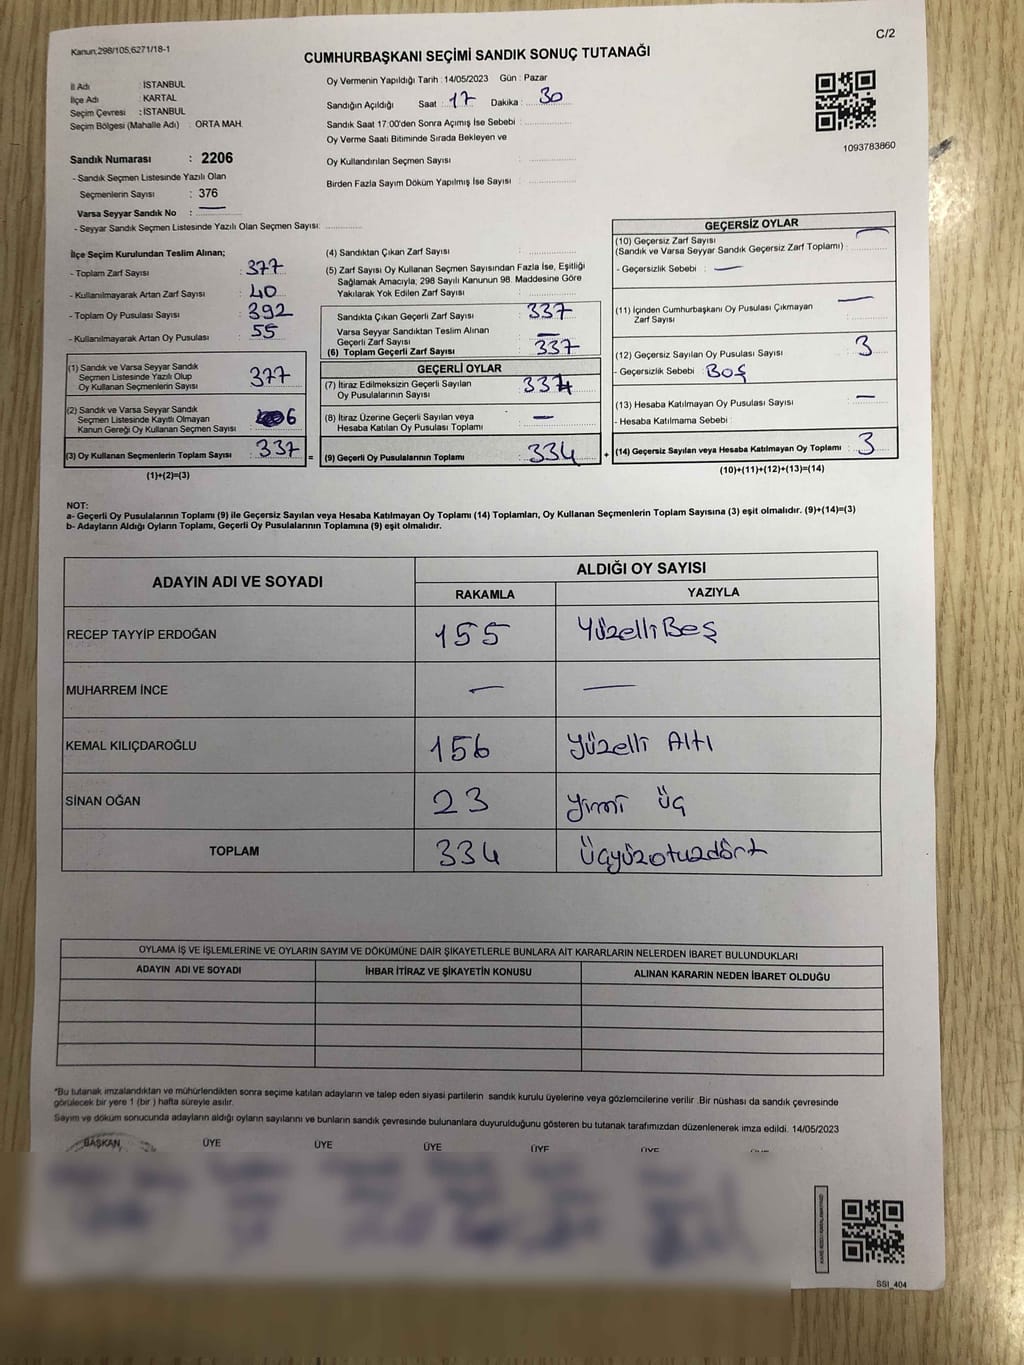 Kanun;298/105,6271/18-1
C/2
CUMHURBAŞKANI SEÇİMİ SANDIK SONUÇ TUTANAĞI
İl Adı : İSTANBUL
İlçe Adı : KARTAL
Seçim Çevresi : İSTANBUL
Seçim Bölgesi (Mahalle Adı) : ORTA MAH.
Sandık Numarası : 2206
- Sandık Seçmen Listesinde Yazılı Olan
Seçmenlerin Sayısı : 376
Varsa Seyyar Sandık No : —
- Seyyar Sandık Seçmen Listesinde Yazılı Olan Seçmen Sayısı:
Oy Vermenin Yapıldığı Tarih : 14/05/2023 Gün : Pazar
Sandığın Açıldığı Saat : 17 Dakika : 30
Sandık Saat 17:00'den Sonra Açımış İse Sebebi :
Oy Verme Saati Bitiminde Sırada Bekleyen ve
Oy Kullandırılan Seçmen Sayısı :
Birden Fazla Sayım Döküm Yapılmış İse Sayısı :
1093783860
İlçe Seçim Kurulundan Teslim Alınan;
- Toplam Zarf Sayısı : 377
- Kullanılmayarak Artan Zarf Sayısı : 40
- Toplam Oy Pusulası Sayısı : 392
- Kullanılmayarak Artan Oy Pusulası : 55
(1) Sandık ve Varsa Seyyar Sandık
Seçmen Listesinde Yazılı Olup
Oy Kullanan Seçmenlerin Sayısı : 377
(2) Sandık ve Varsa Seyyar Sandık
Seçmen Listesinde Kayıtlı Olmayan
Kanun Gereği Oy Kullanan Seçmen Sayısı : 6
(3) Oy Kullanan Seçmenlerin Toplam Sayısı : 337
(1)+(2)=(3)
=
(4) Sandıktan Çıkan Zarf Sayısı :
(5) Zarf Sayısı Oy Kullanan Seçmen Sayısından Fazla İse, Eşitliği
Sağlamak Amacıyla; 298 Sayılı Kanunun 98. Maddesine Göre
Yakılarak Yok Edilen Zarf Sayısı :
Sandıkta Çıkan Geçerli Zarf Sayısı : 337
Varsa Seyyar Sandıktan Teslim Alınan
Geçerli Zarf Sayısı : —
(6) Toplam Geçerli Zarf Sayısı : 337
GEÇERLİ OYLAR
(7) İtiraz Edilmeksizin Geçerli Sayılan
Oy Pusulalarının Sayısı : 334
(8) İtiraz Üzerine Geçerli Sayılan veya
Hesaba Katılan Oy Pusulası Toplamı : —
(9) Geçerli Oy Pusulalarının Toplamı : 334
+
GEÇERSİZ OYLAR
(10) Geçersiz Zarf Sayısı
(Sandık ve Varsa Seyyar Sandık Geçersiz Zarf Toplamı) : —
- Geçersizlik Sebebi : —
(11) İçinden Cumhurbaşkanı Oy Pusulası Çıkmayan
Zarf Sayısı : —
(12) Geçersiz Sayılan Oy Pusulası Sayısı : 3
- Geçersizlik Sebebi : Boş
(13) Hesaba Katılmayan Oy Pusulası Sayısı : —
- Hesaba Katılmama Sebebi :
(14) Geçersiz Sayılan veya Hesaba Katılmayan Oy Toplamı : 3
(10)+(11)+(12)+(13)=(14)
NOT:
a- Geçerli Oy Pusulalarının Toplamı (9) ile Geçersiz Sayılan veya Hesaba Katılmayan Oy Toplamı (14) Toplamları, Oy Kullanan Seçmenlerin Toplam Sayısına (3) eşit olmalıdır. (9)+(14)=(3)
b- Adayların Aldığı Oyların Toplamı, Geçerli Oy Pusulalarının Toplamına (9) eşit olmalıdır.
ADAYIN ADI VE SOYADI ALDIĞI OY SAYISI
RAKAMLA YAZIYLA
RECEP TAYYİP ERDOĞAN 155 YüzelliBeş
MUHARREM İNCE — —
KEMAL KILIÇDAROĞLU 156 Yüzelli Altı
SİNAN OĞAN 23 Yirmi Üç
TOPLAM 334 Üçyüzotuzdört
OYLAMA İŞ VE İŞLEMLERİNE VE OYLARIN SAYIM VE DÖKÜMÜNE DAİR ŞİKAYETLERLE BUNLARA AİT KARARLARIN NELERDEN İBARET BULUNDUKLARI
ADAYIN ADI VE SOYADI İHBAR İTİRAZ VE ŞİKAYETİN KONUSU ALINAN KARARIN NEDEN İBARET OLDUĞU
*Bu tutanak imzalandıktan ve mühürlendikten sonra seçime katılan adayların ve talep eden siyasi partilerin sandık kurulu üyelerine veya gözlemcilerine verilir .Bir nüshası da sandık çevresinde
görülecek bir yere 1 (bir ) hafta süreyle asılır.
Sayım ve döküm sonucunda adayların aldığı oyların sayılarını ve bunların sandık çevresinde bulunanlara duyurulduğunu gösteren bu tutanak tarafımızdan düzenlenerek imza edildi. 14/05/2023
BAŞKAN ÜYE ÜYE ÜYE ÜYE ÜYE
SSI_404